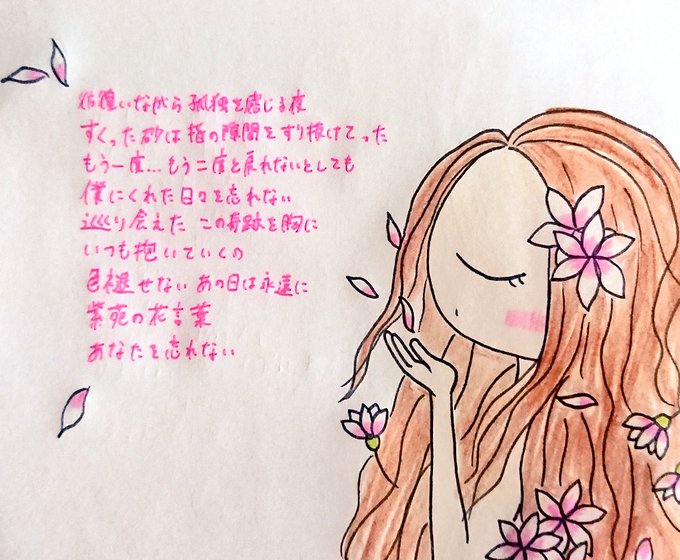 彷徨いながら孤独を感じる夜
すくった砂は指の隙間をすり抜けてった
もう一度...もう二度と戻れないとしても
僕にくれた日々を忘れない
巡り会えた この奇跡を胸に
いつも抱いていくの
色褪せない あの日は永遠に
紫苑の花言葉
あなたを忘れない